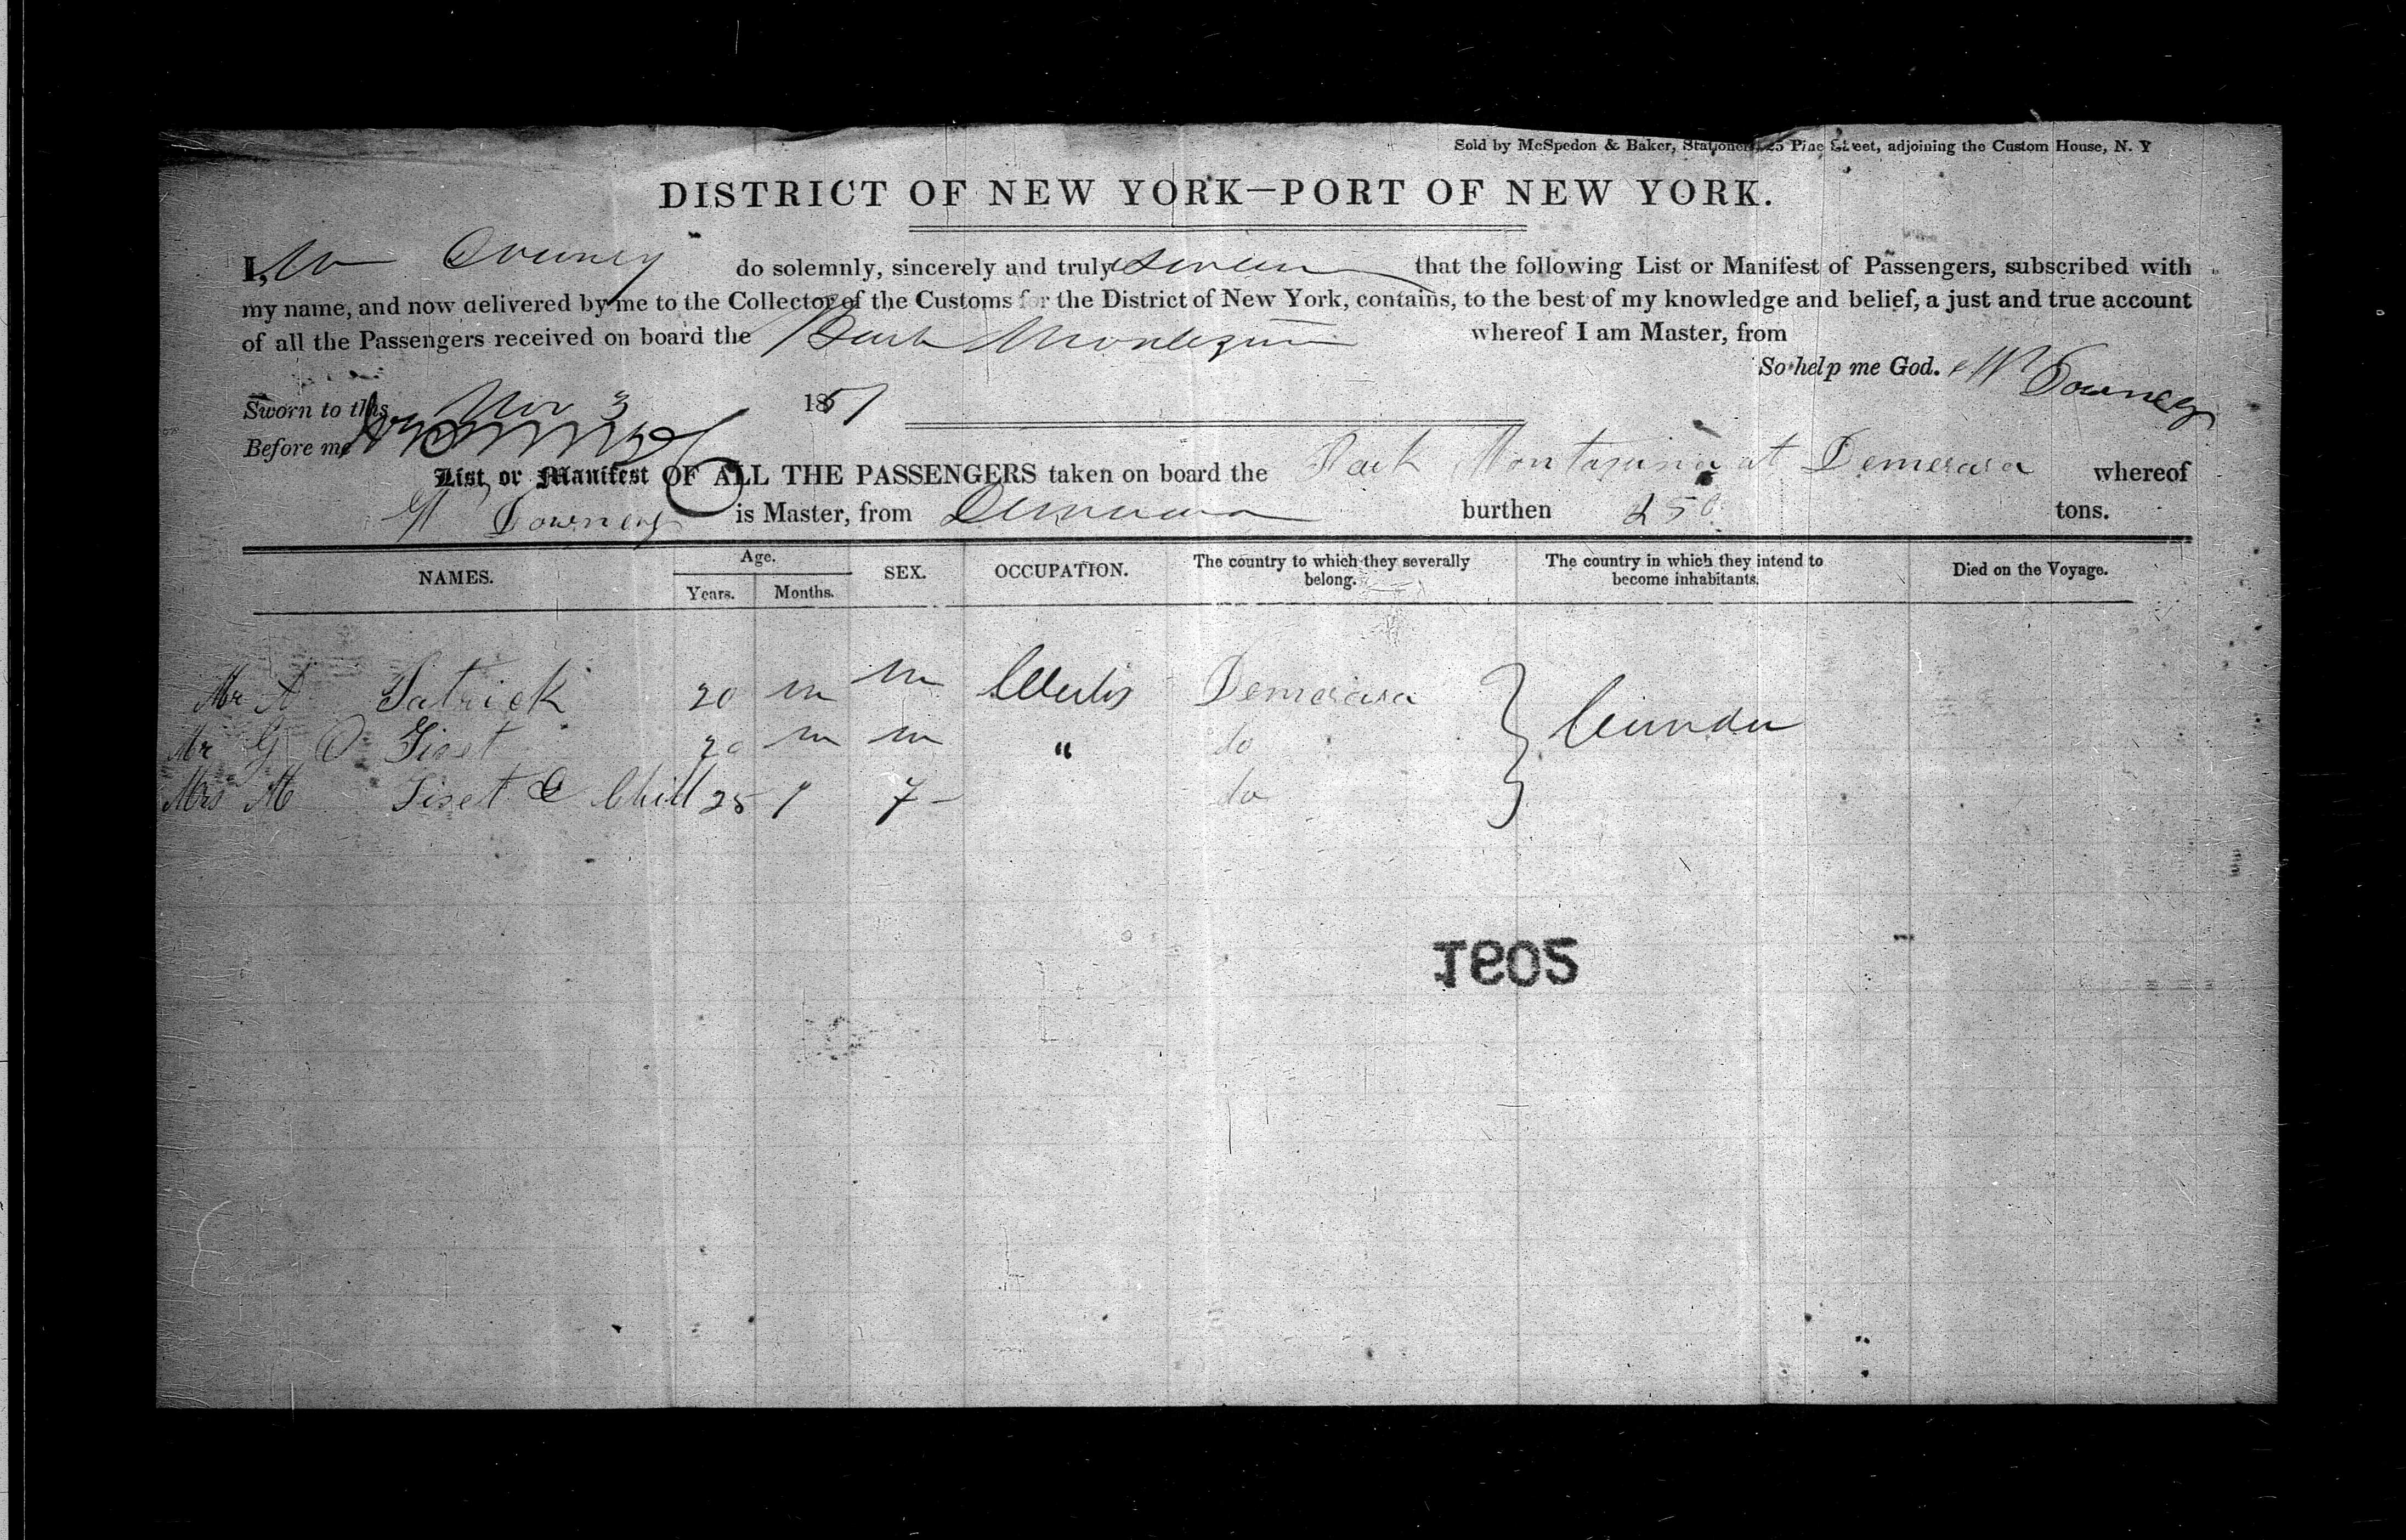 Sold by McSpedon & Baker, Stationers, 25 Pine Street, adjoining the Custom House, N. Y
DISTRICT OF NEW YORK—PORT OF NEW YORK.
I, Wm Downey do solemnly, sincerely and truly swear that the following List or Manifest of Passengers, subscribed with
my name, and now delivered by me to the Collector of the Customs for the District of New York, contains, to the best of my knowledge and belief, a just and true account
of all the Passengers received on board the Bark Montezuma whereof I am Master, from
So help me God. W Downey
Sworn to this Nov 3 1851
Before me
List or Manifest OF ALL THE PASSENGERS taken on board the Bark Montazuma at Demerara whereof
W Downey is Master, from Demerara burthen 250 tons.
NAMES. Age. Years. Months. SEX. OCCUPATION. The country to which they severally belong. The country in which they intend to become inhabitants. Died on the Voyage.
Mr A Patrick 20 m m Demerara
Mr G O Tixet 20 m m " do
Mrs M Tixet & Child 25 1 f do
Canada
1602